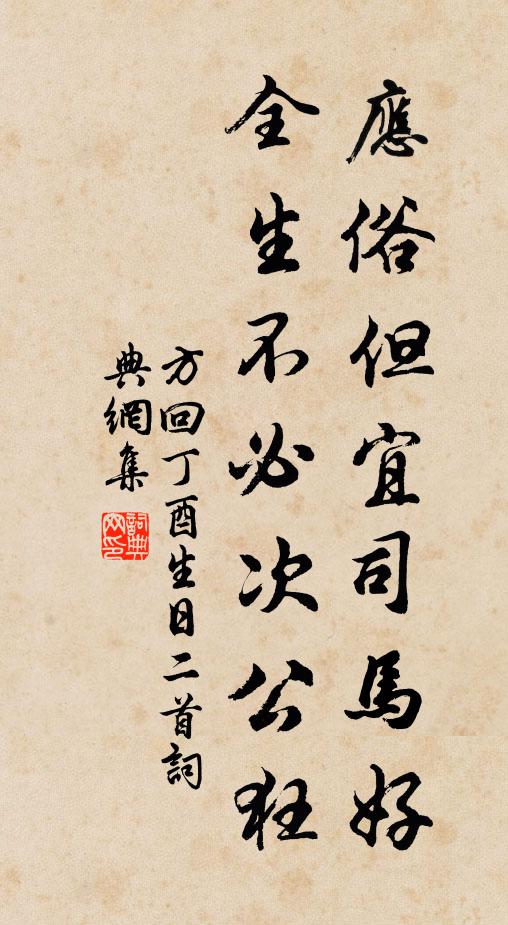 應俗但宜司馬好
全生不必次公狂
方回丁酉生日二首詞
典網集
詞典
网印